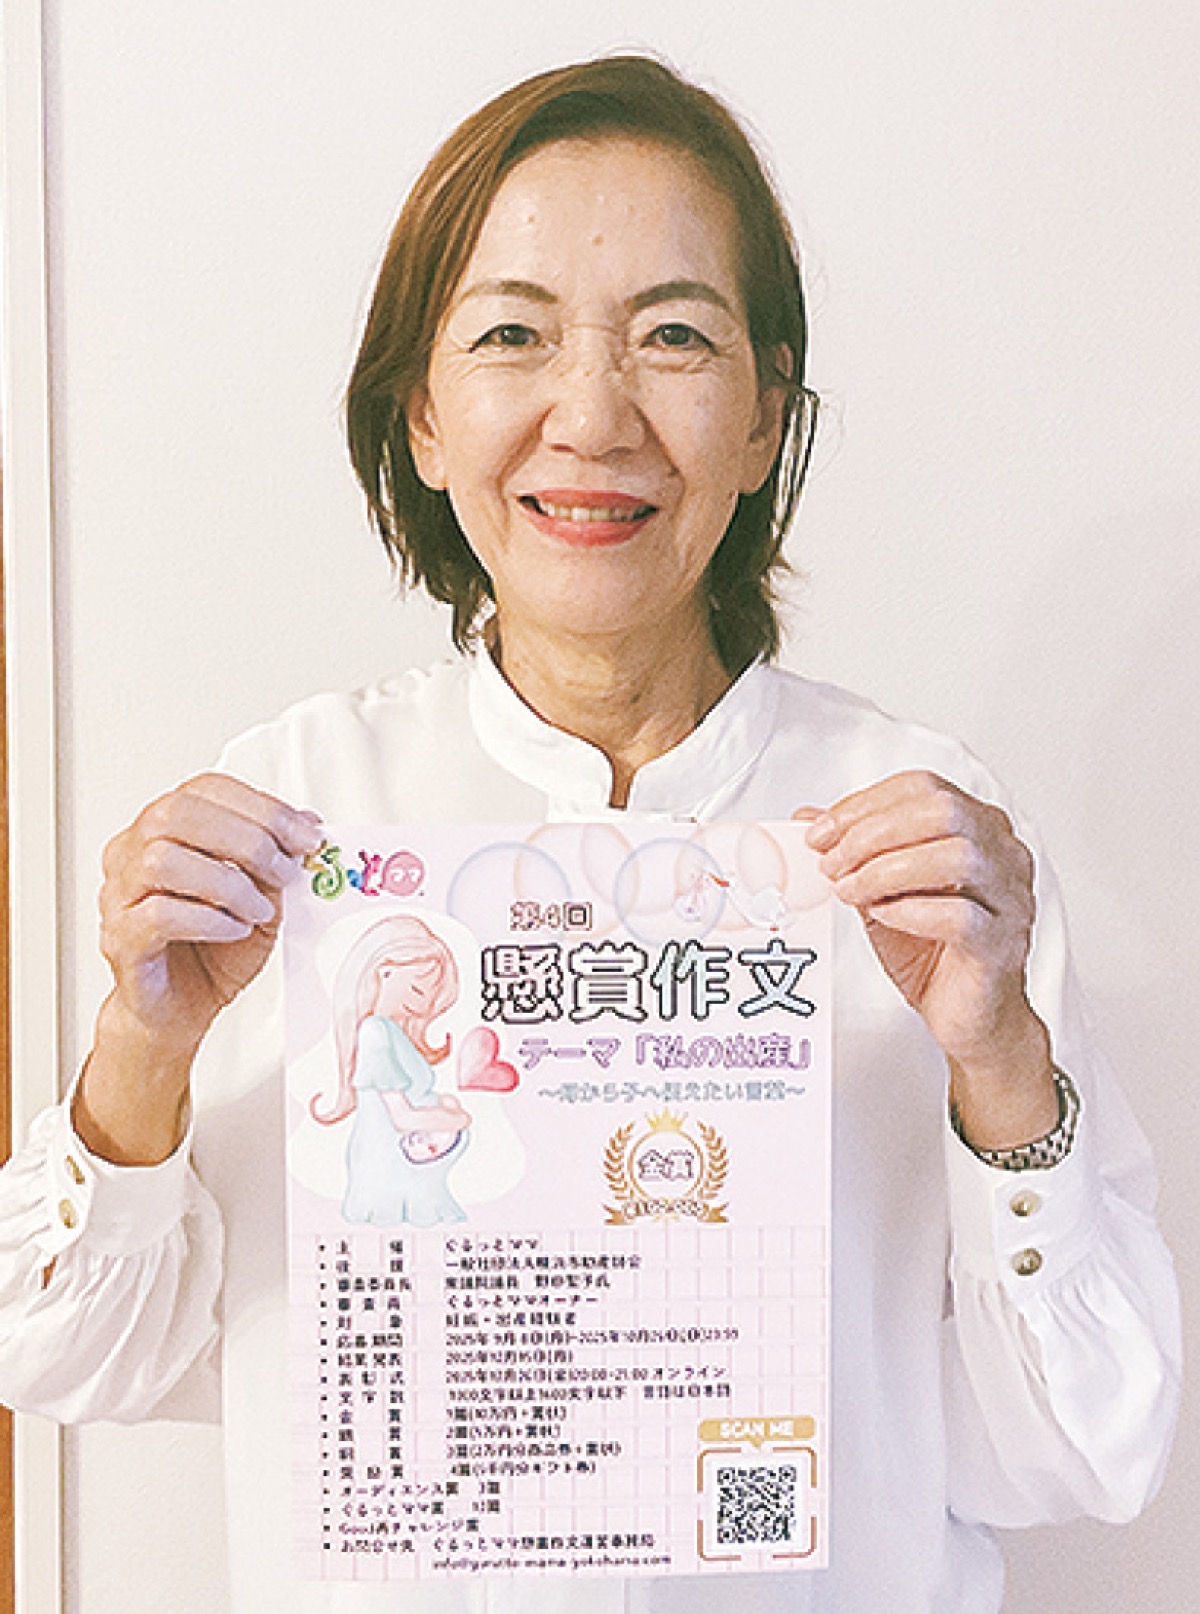 第4回
懸賞作文
テーマ「私の出産」
～母から子へ伝えたい言葉～
金賞
¥100,000
・主催 ぐるっとママ
・後援 一般社団法人横浜市助産師会
・審査委員長 衆議院議員 野田聖子氏
・審査員 ぐるっとママオーナー
・対象 妊娠・出産経験者
・応募期間 2025年9月8日(月)~2025年10月26日(日)23:59
・結果発表 2025年12月15日(月)
・表彰式 2025年12月26日(金)20:00~21:00 オンライン
・文字数 1000文字以上1600文字以下 言語は日本語
・金賞 1編(10万円+賞状)
・銀賞 2編(5万円+賞状)
・銅賞 3編(2万円分商品券+賞状)
・奨励賞 4編(5千円分ギフト券)
・オーディエンス賞 3編
・ぐるっとママ賞 12編
・Good再チャレンジ賞
・お問合せ先 ぐるっとママ懸賞作文運営事務局
info@gurutto-mama-yokohama.com
SCAN ME